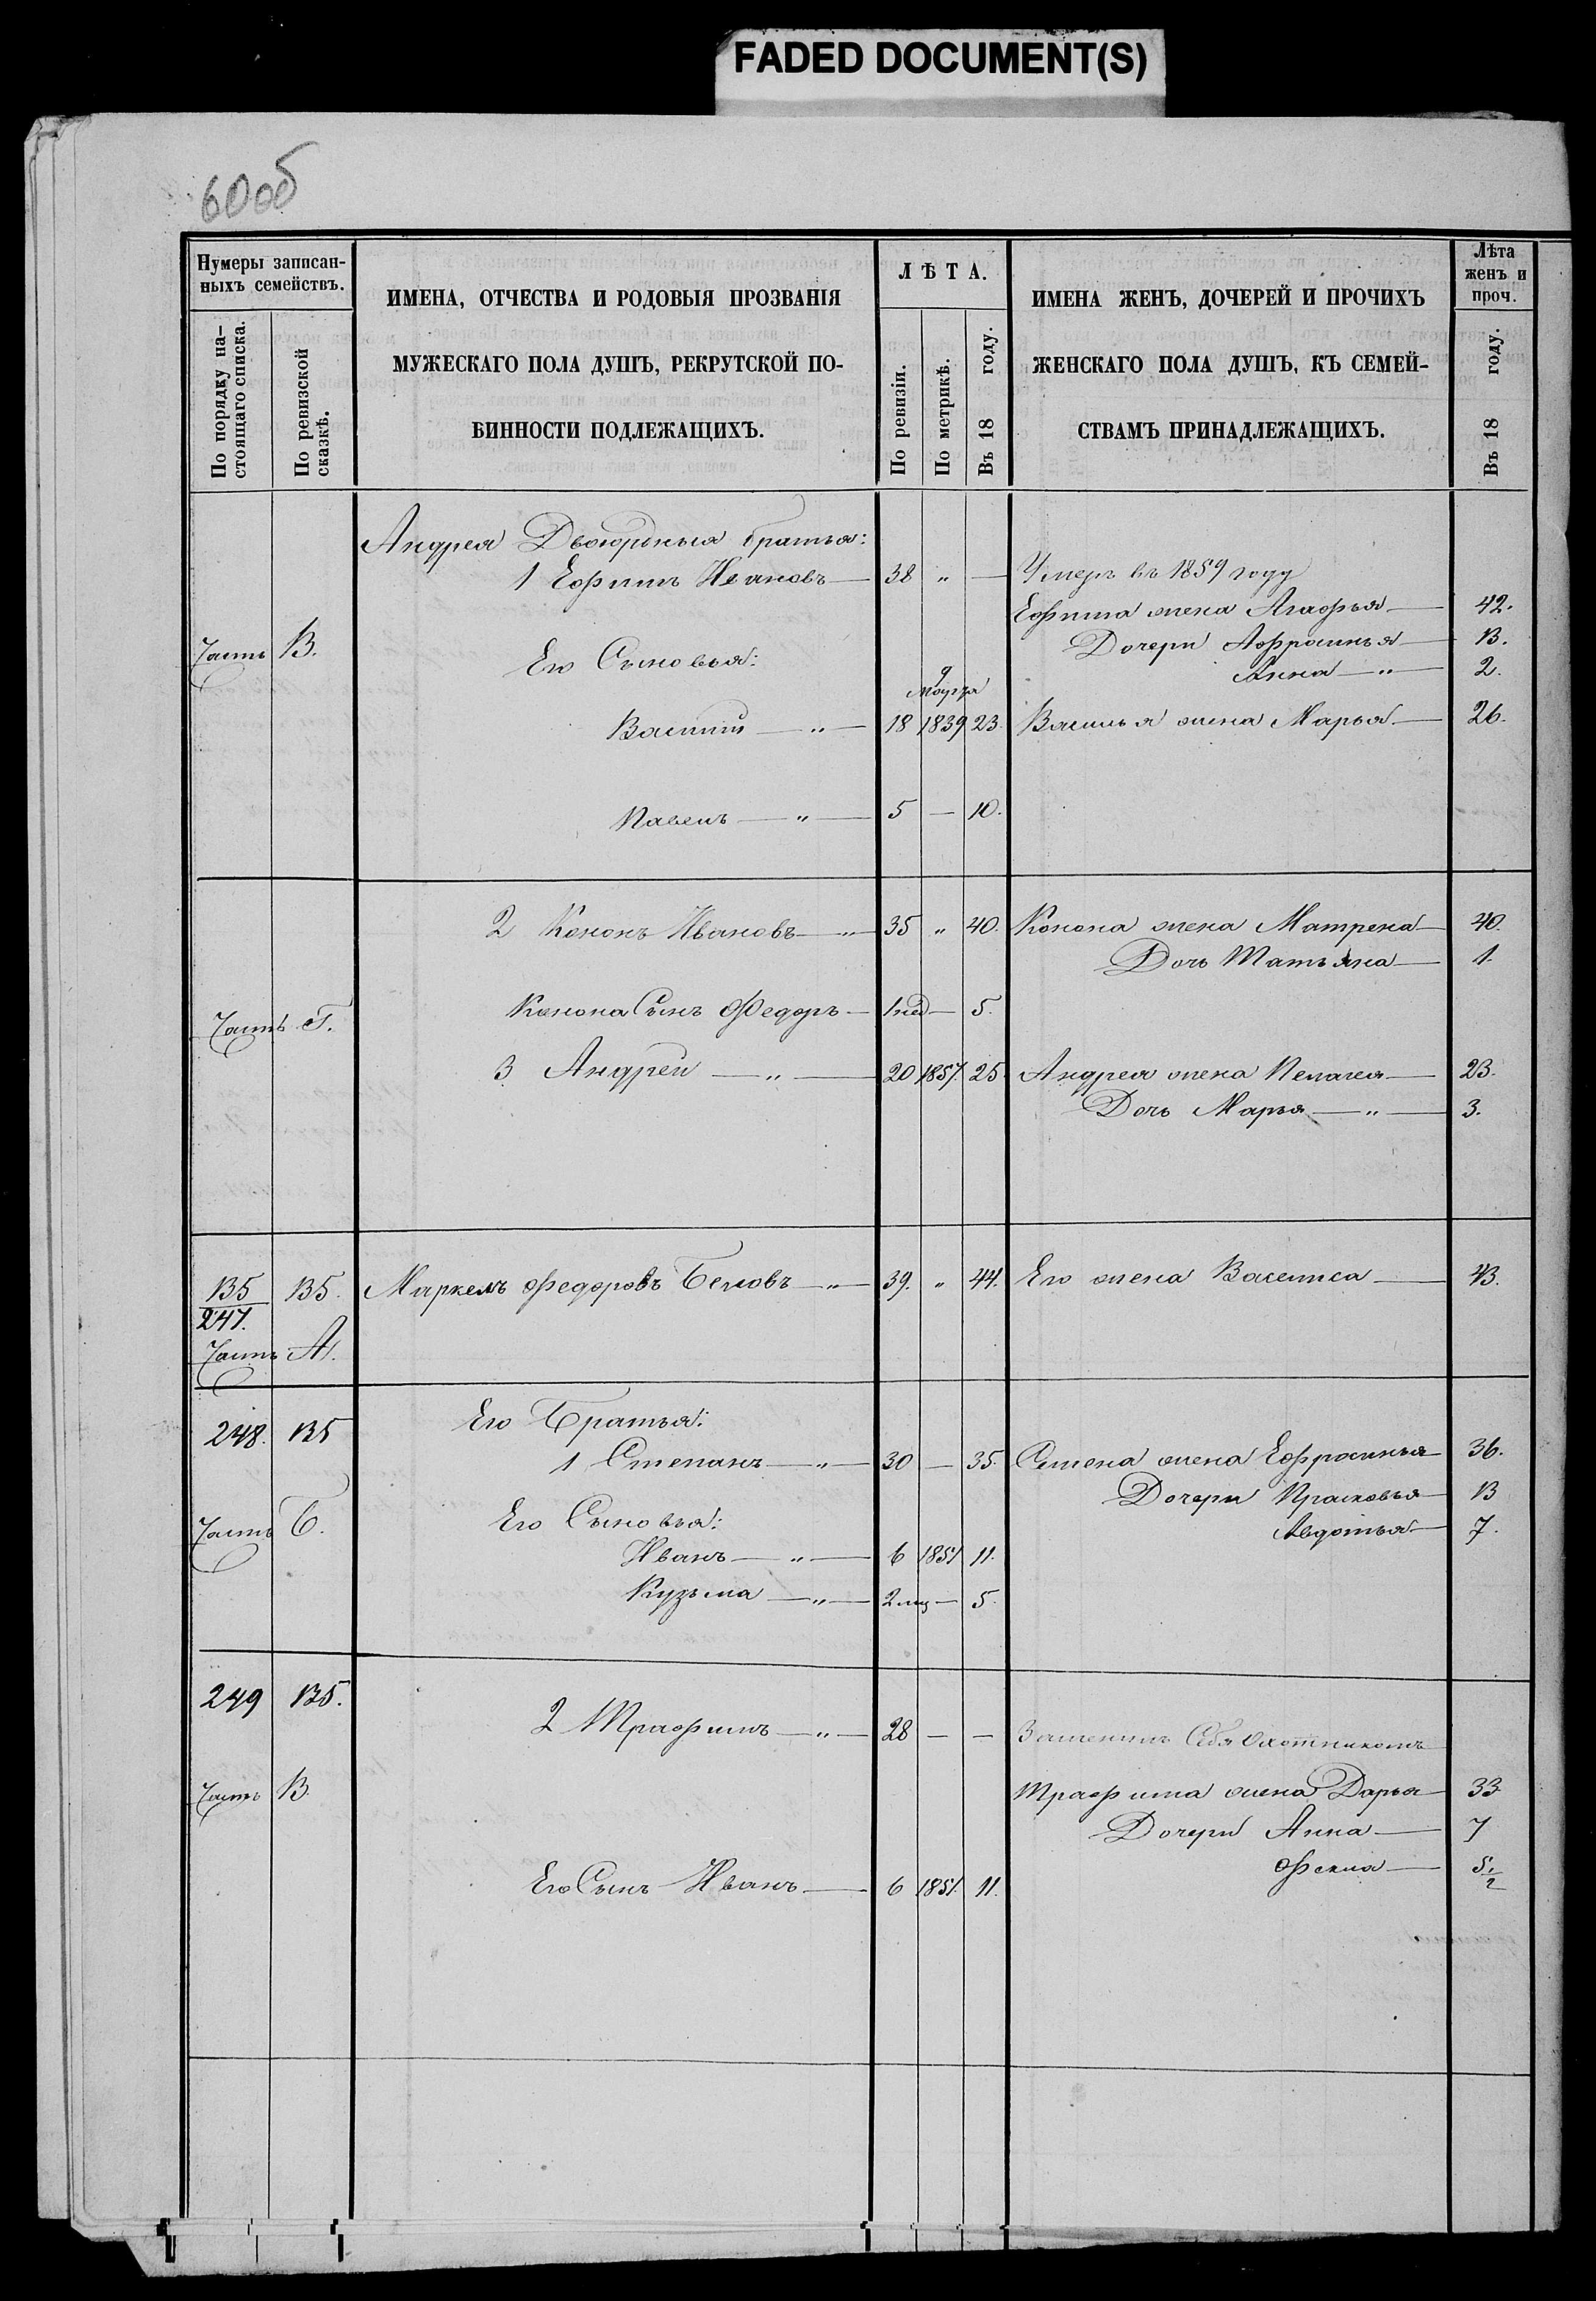 FADED DOCUMENT(S)
60об
Нумеры записан-
ныхъ семействъ.
По порядку на-
стоящаго списка.
По ревизской
сказкѣ.
ИМЕНА, ОТЧЕСТВА И РОДОВЫЯ ПРОЗВАНІЯ
МУЖЕСКАГО ПОЛА ДУШЪ, РЕКРУТСКОЙ ПО-
ВИННОСТИ ПОДЛЕЖАЩИХЪ.
ЛѢТА.
По ревизіи.
По метрикѣ.
Въ 18 году.
ИМЕНА ЖЕНЪ, ДОЧЕРЕЙ И ПРОЧИХЪ
ЖЕНСКАГО ПОЛА ДУШЪ, КЪ СЕМЕЙ-
СТВАМЪ ПРИНАДЛЕЖАЩИХЪ.
Лѣта
женъ и
проч.
Въ 18 году.
Андрея Двоюрдныя братья:
1 Ефимъ Ивановъ — 38 „ — Умеръ въ 1859 году
Ефима жена Агафья — 42.
Часть В.
Дочери Афросинья — 13.
Его Сыновья:
Анна — „ 2.
9 марта
Василій — „ — 18 1839 23. Василья жена Марья — 26.
Павелъ — „ — 5 — 10.
2 Кононъ Ивановъ — „ 35 „ 40. Конона жена Матрена — 40.
Дочь Татьяна — 1.
Часть Г.
Конона Сынъ Федоръ — 1 нед — 5.
3 Андрей — „ — 20 1857. 25. Андрея жена Пелагея — 23.
Дочь Марья — „ — 3.
135 135. Маркелъ Федоровъ Беловъ — „ 39. „ 44. Его жена Василиса — 43.
247.
Часть А.
Его Братья:
248. 135
1 Степанъ — „ — 30 — 35. Семена жена Ефросинья 36.
Дочери Прасковья 13
Часть Б.
Его Сыновья:
Авдотья — 7.
Иванъ — „ — 6 1851 11.
Кузьма — „ — 2 мц — 5.
249 135.
2 Трафимъ — „ — 28 — — Заменилъ Себя Охотникомъ
Часть В.
Трафима жена Дарья 33.
Дочери Анна — 7
Фекла — 5 1/2
Его Сынъ Иванъ — 6 1851. 11.